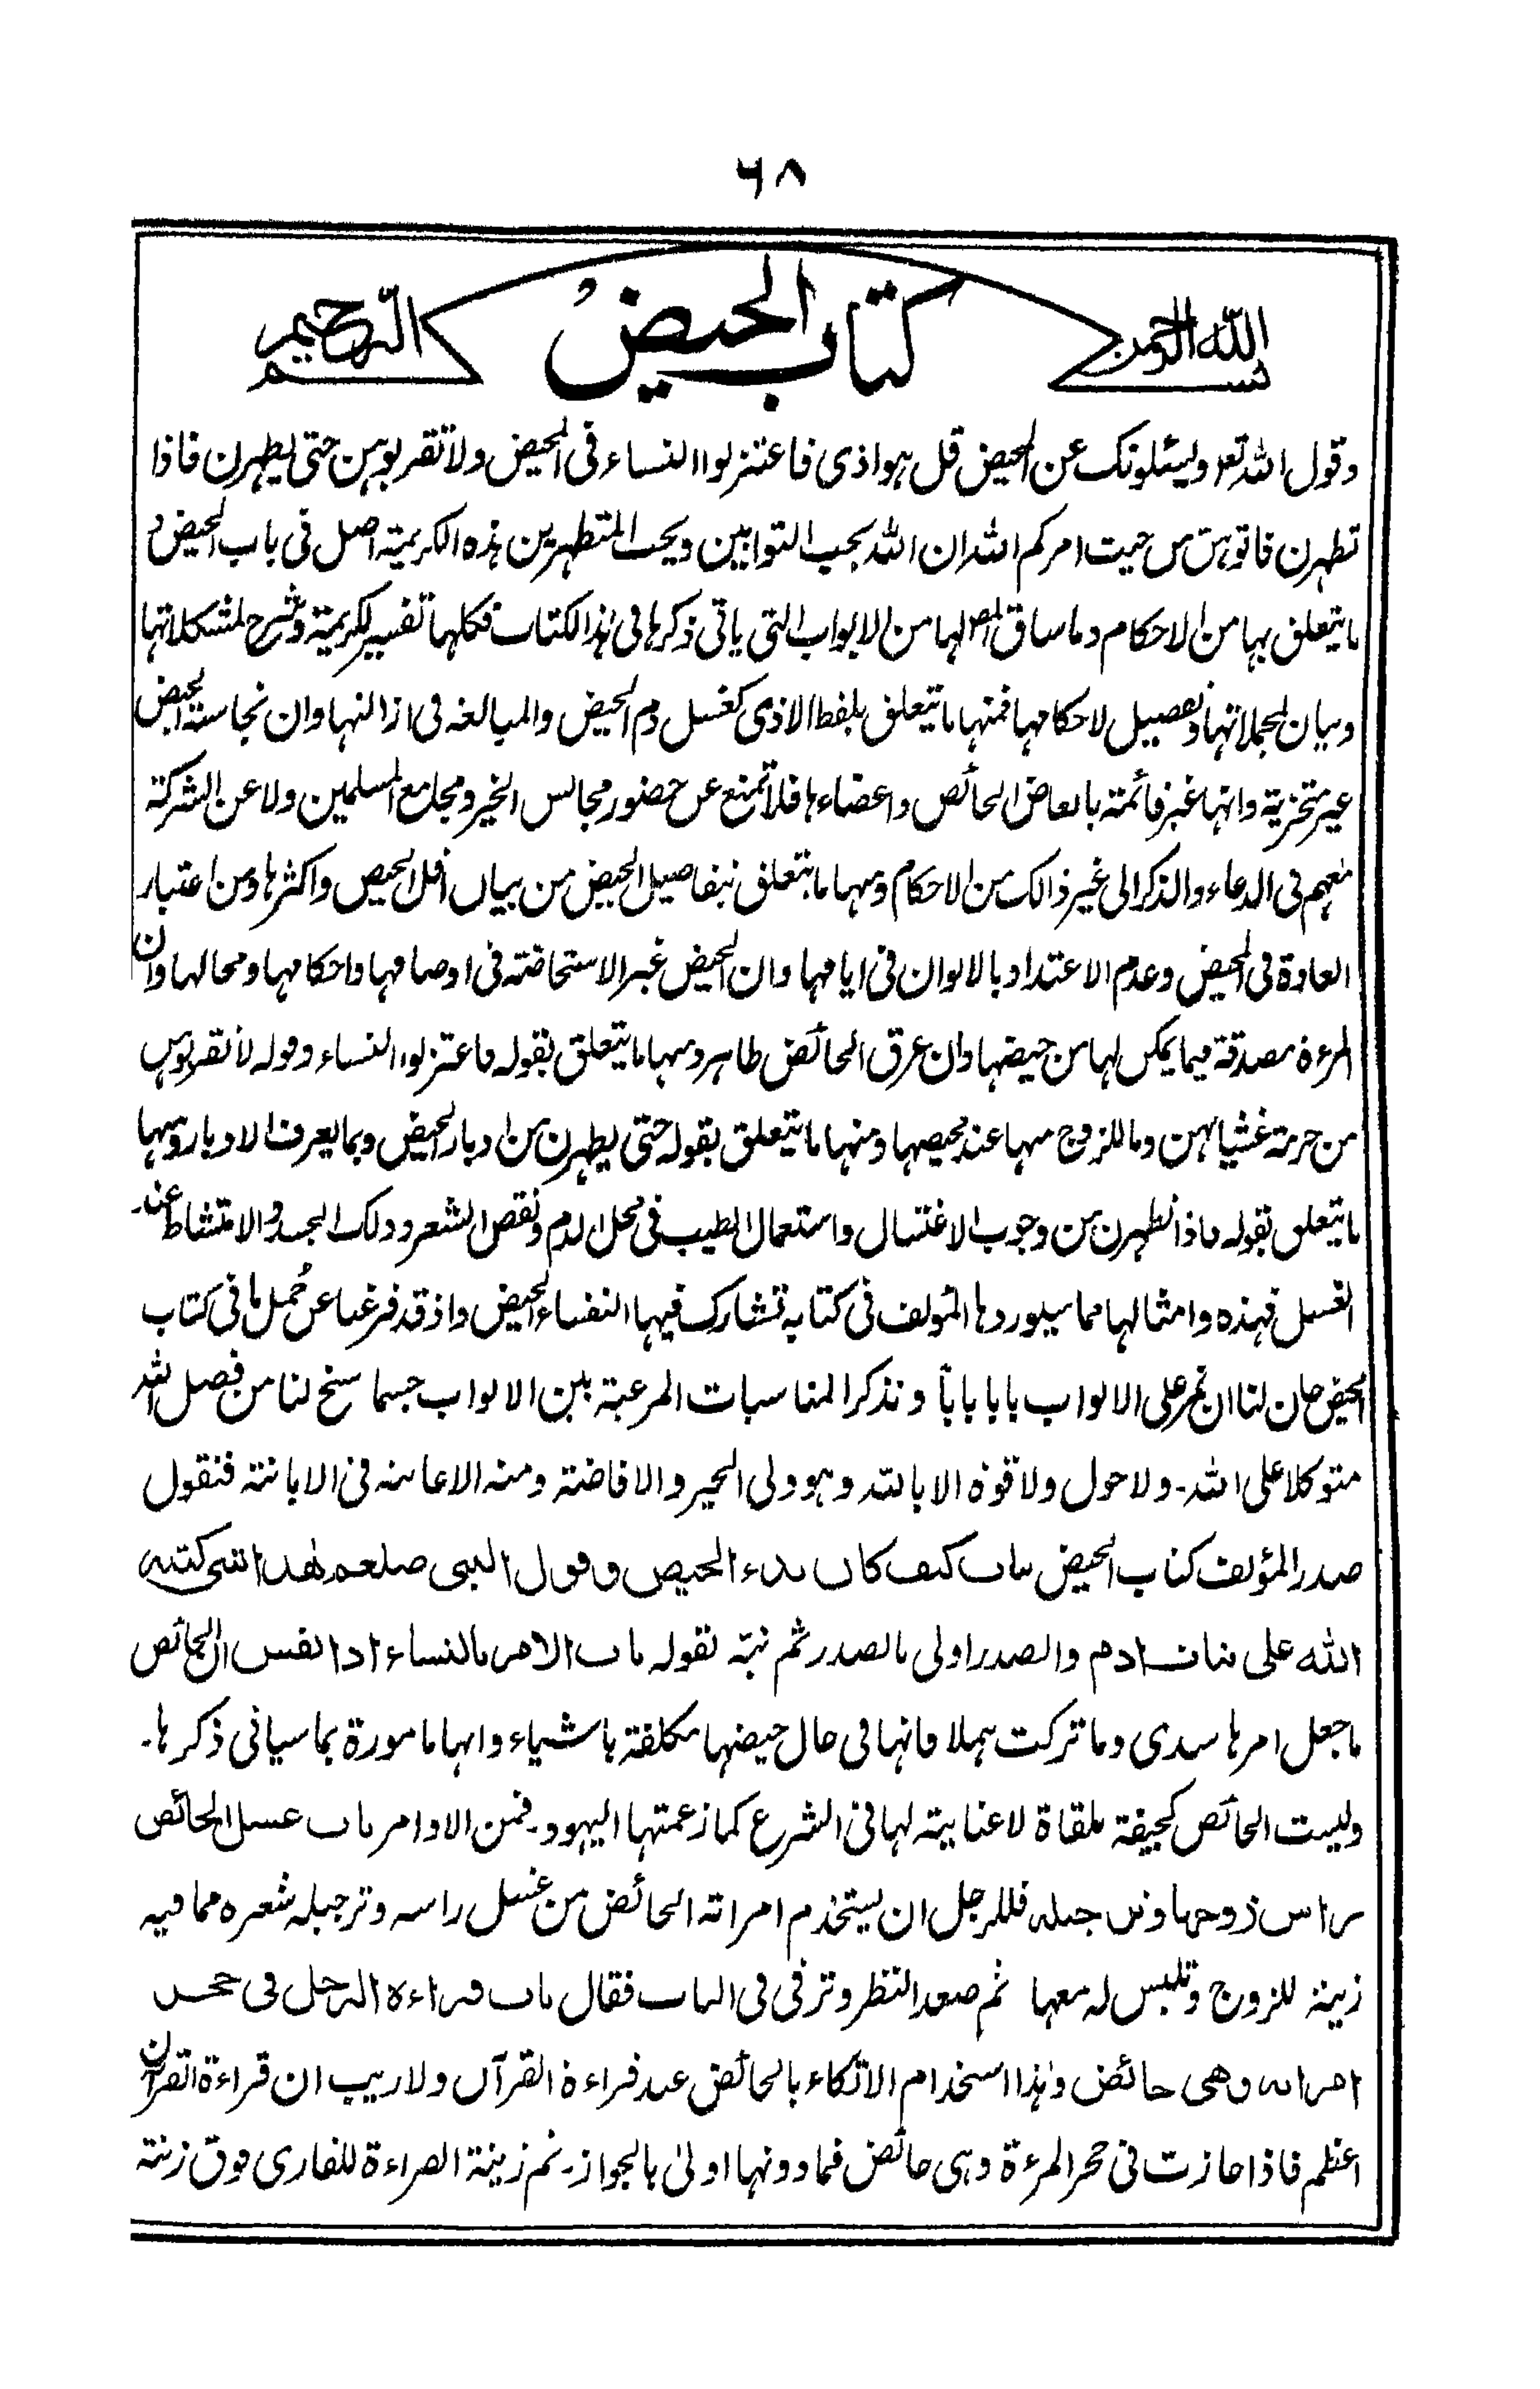 ٦٨
بسم الله الرحمن الرحيم
كتاب الحيض
وقول الله تعر ويسئلونك عن المحيض قل هو اذى فاعتزلوا النساء فى المحيض ولا تقربوهن حتى يطهرن فاذا
تطهرن فاتوهن من حيث امركم الله ان الله يحب التوابين ويحب المتطهرين هذه الكريمة اصل فى باب الحيض و
ما يتعلق بها من الاحكام وما ساق المص لها من الابواب التى ياتى ذكرها فى هذا الكتاب فكلها تفسير لكريمة وشرح لمشكلاتها
وبيان لمجملاتها وتفصيل لاحكامها فمنها ما يتعلق بلفظ الاذى كغسل دم الحيض والمبالغه فى ازالتها وان نجاسة الحيض
غير متجزية وانها غير قائمة بابعاض الحائض واعضاءها فلا تمنع عن حضور مجالس الخير ومجامع المسلمين ولا عن الشركة
معهم فى الدعاء والذكر الى غير ذالك من الاحكام ومنها ما يتعلق بتفاصيل الحيض من بيان اقل الحيض واكثرها ومن اعتبار
العادة فى الحيض وعدم الاعتداد بالالوان فى ايامها وان الحيض غير الاستحاضة فى اوصافها واحكامها ومحالها وان
المرءة مصدقة فيما يمكن لها من حيضها وان عرق الحائض طاهر ومنها ما يتعلق بقوله فاعتزلوا النساء وقوله لا تقربوهن
من حرمة غشيانهن وما للزوج منها عند محيضها ومنها ما يتعلق بقوله حتى يطهرن من ادبار الحيض وبما يعرف الادبار ومنها
ما يتعلق بقوله فاذا تطهرن من وجوب الاغتسال واستعمال الطيب فى محل الدم ونقض الشعر ودلك الجسد والامتشاط عند
الغسل فهذه وامثالها مما سيوردها المؤلف فى كتابه تشارك فيها النفساء الحيض واذ قد فرغنا عن مجمل ما فى كتاب
الحيض حان لنا ان نمر على الابواب بابا باباً ونذكر المناسبات المرعية بين الابواب حسبما سنح لنا من فضل الله
متوكلا على الله۔ ولا حول ولا قوة الا بالله وهو ولى الخير والافاضة ومنه الاعانة فى الابانة فنقول
صدر المؤلف كتاب الحيض باب كيف كان بدء الحيض وقول النبى صلعم هذا شئ كتبه
الله على بنات ادم والصدر اولى بالصدر ثم نبّه بقوله باب الامر بالنساء اذا نفسن ان الحائض
ما جعل امرها سدى وما تركت هملا فانها فى حال حيضها مكلفة باشياء وانها مامورة بما سياتى ذكرها۔
وليست الحائض كجيفة ملقاة لا عناية لها فى الشرع كما زعمتها اليهود۔ فمن الاوامر باب غسل الحائض
راس زوجها وترجيله فللرجل ان يستخدم امراته الحائض من غسل راسه وترجيله شعره مما فيه
زينة للزوج وتلبس له معها ثم صعد النظر وترقى فى الباب فقال باب قراءة الرجل فى حجر
امراته وهى حائض وهذا استخدام الاتكاء بالحائض عند قراءة القرآن ولا ريب ان قراءة القران
اعظم فاذا جازت فى حجر المرءة وهى حائض فما دونها اولىٰ بالجواز۔ ثم زينة القراءة للقارى فوق زينة